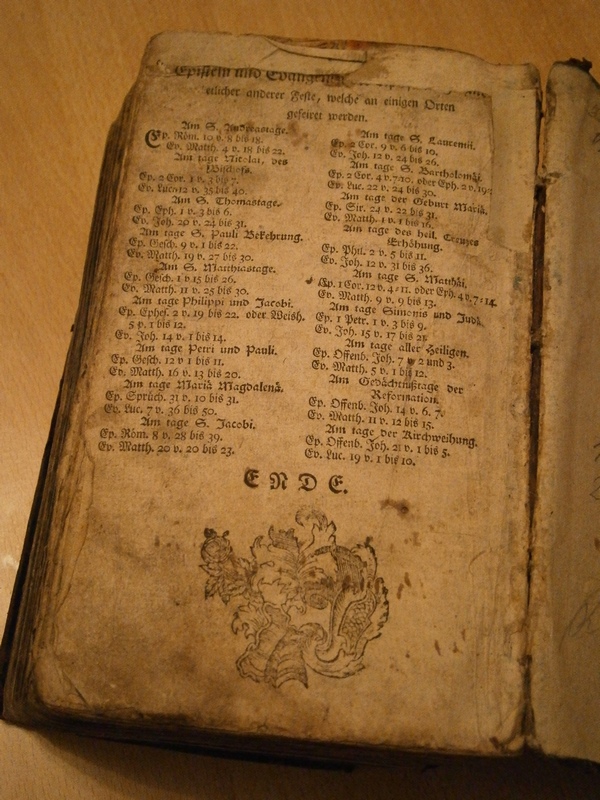 Episteln und Evangelien
etlicher anderer Feste, welche an einigen Orten
gefeiret werden.
Am S. Andreastage.
Ep. Röm. 10 v. 8 bis 18.
Ev. Matth. 4 v. 18 bis 22.
Am tage Nicolai, des
Bischofs.
Ep. 2 Cor. 1 v. 3 bis 7.
Ev. Luc. 12 v. 35 bis 40.
Am S. Thomastage.
Ep. Eph. 1 v. 3 bis 6.
Ev. Joh. 20 v. 24 bis 31.
Am tage S. Pauli Bekehrung.
Ep. Gesch. 9 v. 1 bis 22.
Ev. Matth. 19 v. 27 bis 30.
Am S. Matthiastage.
Ep. Gesch. 1 v 15 bis 26.
Ev. Matth. 11 v. 25 bis 30.
Am tage Philippi und Jacobi.
Ep. Ephes. 2 v. 19 bis 22. oder Weish.
5 v. 1 bis 12.
Ev. Joh. 14 v. 1 bis 14.
Am tage Petri und Pauli.
Ep. Gesch. 12 v 1 bis 11.
Ev. Matth. 16 v. 13 bis 20.
Am tage Mariä Magdalenä.
Ep. Sprüch. 31 v. 10 bis 31.
Ev. Luc. 7 v. 36 bis 50.
Am tage S. Jacobi.
Ep. Röm. 8 v. 28 bis 39.
Ev. Matth. 20 v. 20 bis 23.
Am tage S. Laurentii.
Ep. 2 Cor. 9 v. 6 bis 10.
Ev. Joh. 12 v. 24 bis 26.
Am tage S. Bartholomäi.
Ep. 2 Cor. 4 v. 7:10. oder Eph. 2 v. 19:
Ev. Luc. 22 v. 24 bis 30.
Am tage der Geburt Mariä.
Ep. Sir. 24 v. 22 bis 31.
Ev. Matth. 1 v. 1 bis 16.
Am tage des heil. Creuzes
Erhöhung.
Ep. Phil. 2 v. 5 bis 11.
Ev. Joh. 12 v. 31 bis 36.
Am tage S. Matthäi.
Ep. 1 Cor. 12 v. 4:11. oder Eph. 4 v. 7:14.
Ev. Matth. 9 v. 9 bis 13.
Am tage Simonis und Judä.
Ep. 1 Petr. 1 v. 3 bis 9.
Ev. Joh. 15 v. 17 bis 21.
Am tage aller Heiligen.
Ep. Offenb. Joh. 7 v. 2 und 3.
Ev. Matth. 5 v. 1 bis 12.
Am Gedächtnißtage der
Reformation.
Ep. Offenb. Joh. 14 v. 6. 7.
Ev. Matth. 11 v. 12 bis 15.
Am tage der Kirchweihung.
Ep. Offenb. Joh. 21 v. 1 bis 5.
Ev. Luc. 19 v. 1 bis 10.
ENDE.